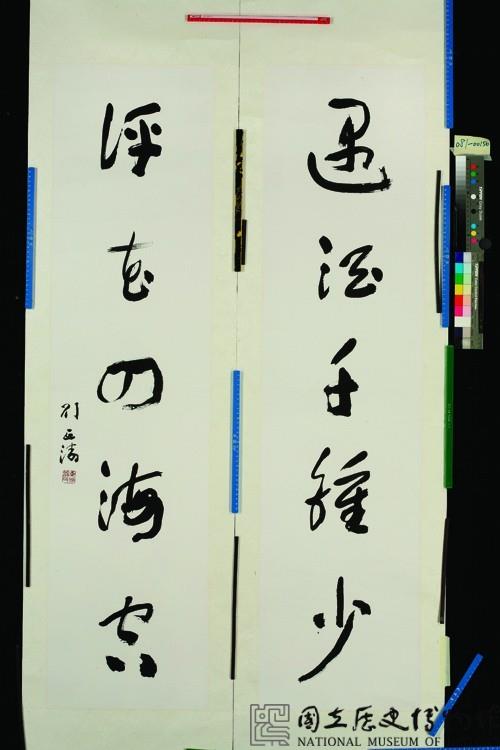 遇酒千鍾少
評花四海空
劉延濤
081-00150
國立歷史博
NATIONAL MUSEUM OF